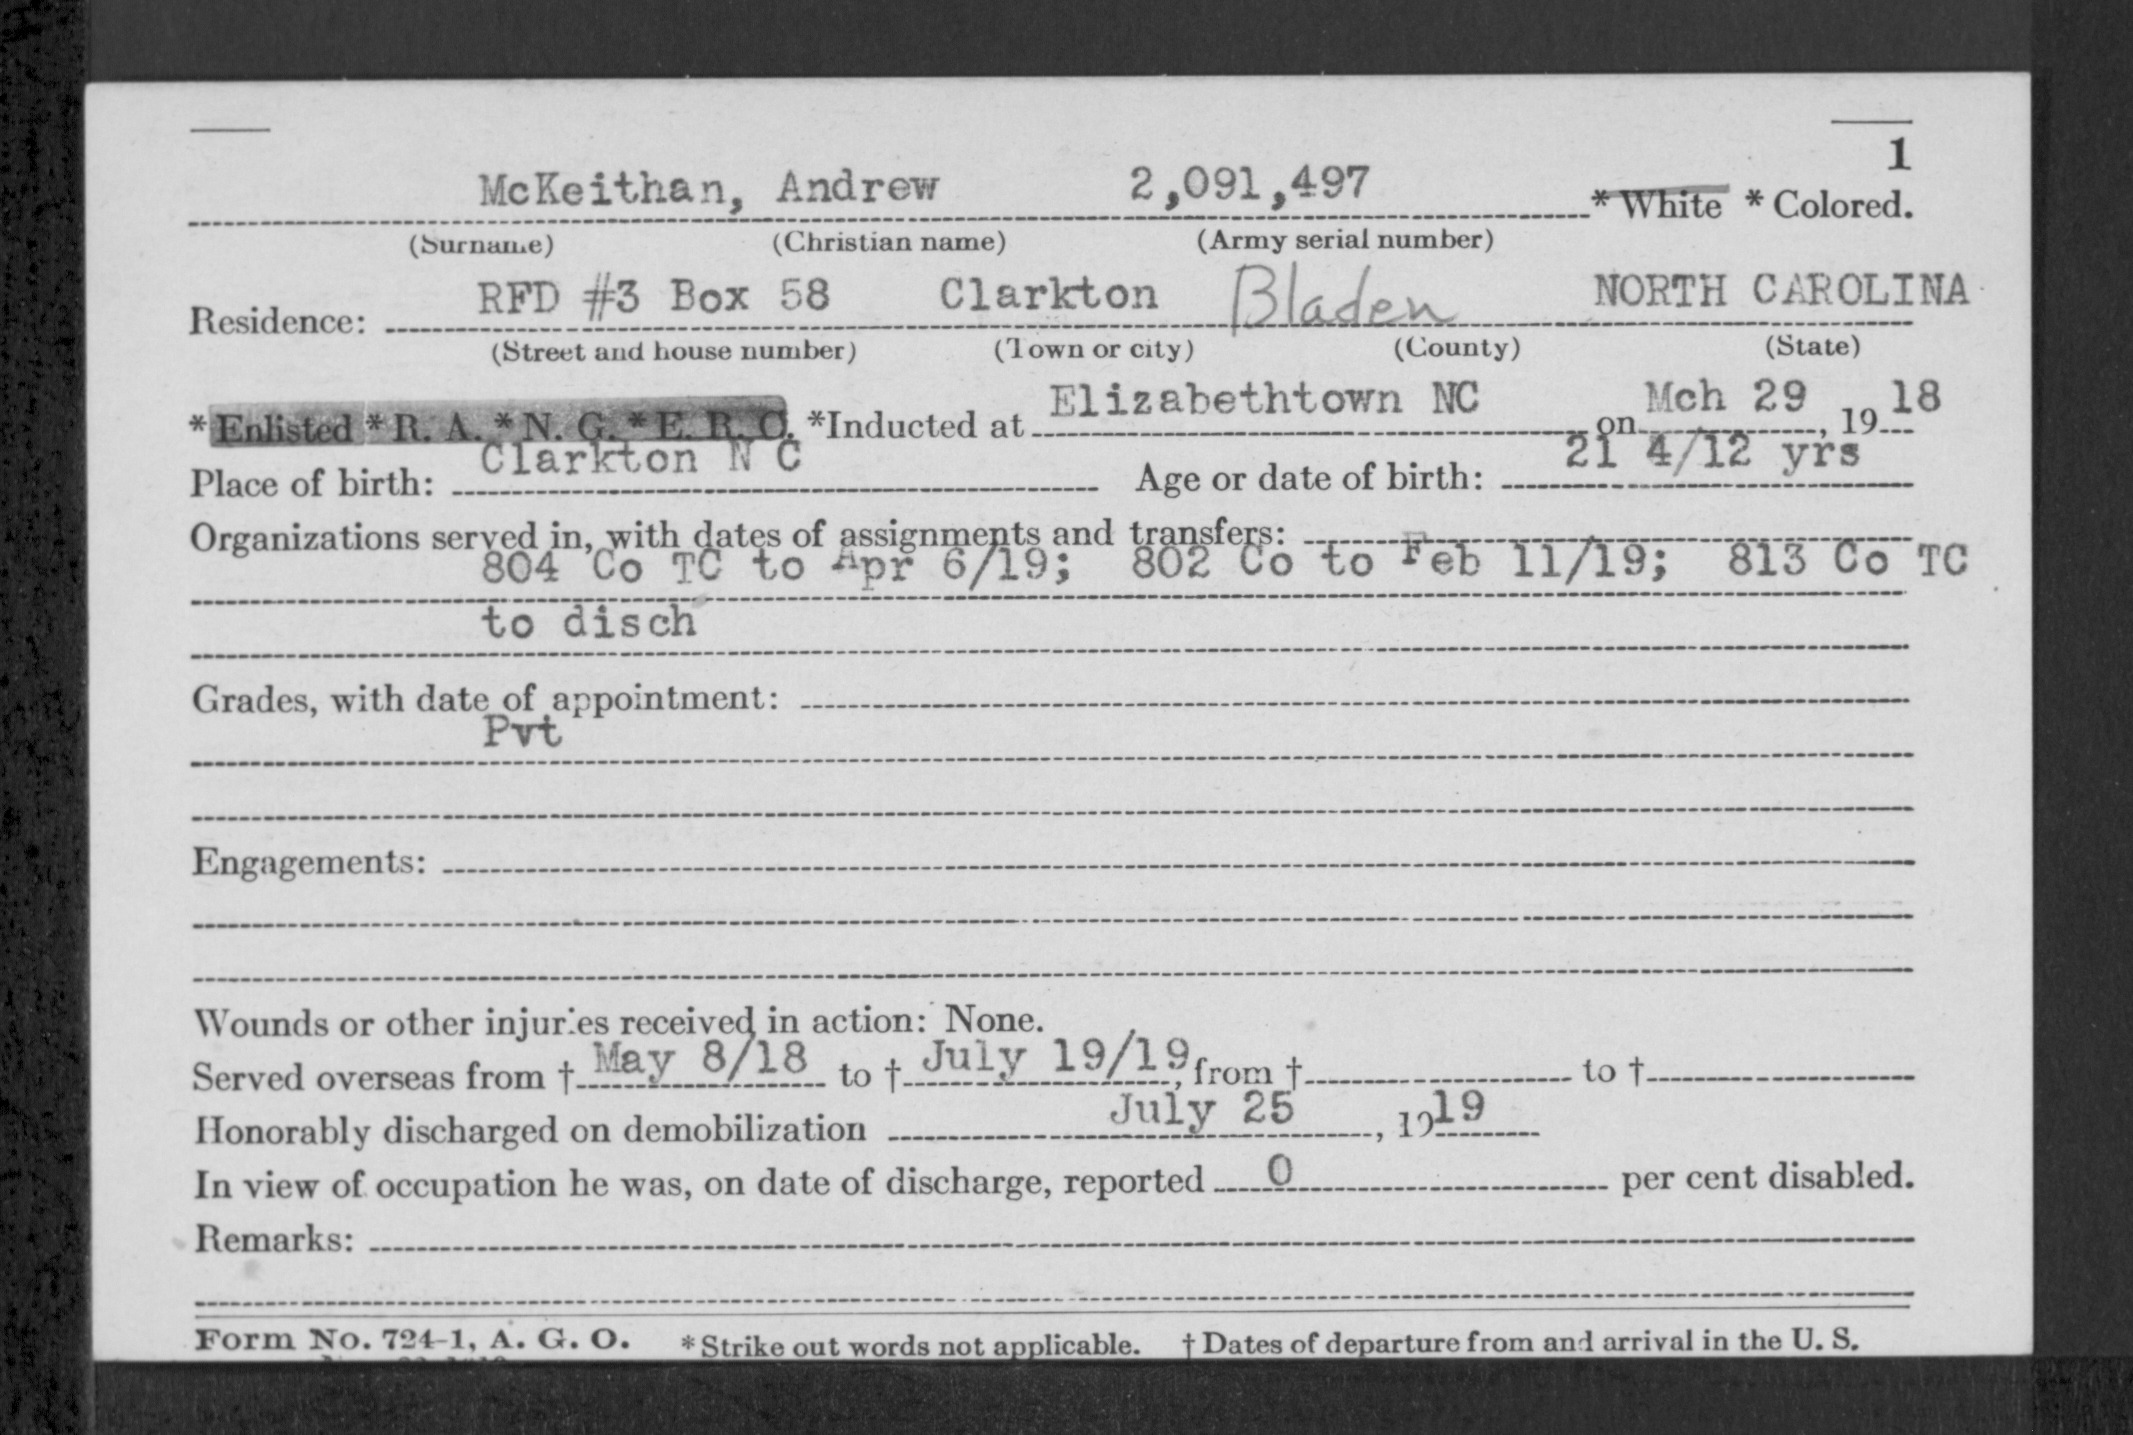 1
McKeithan, Andrew 2,091,497 * White * Colored.
(Surname) (Christian name) (Army serial number)
Residence: RFD #3 Box 58 Clarkton Bladen NORTH CAROLINA
(Street and house number) (Town or city) (County) (State)
* Enlisted * R. A. * N. G. * E. R. C. *Inducted at Elizabethtown NC on Mch 29, 1918
Place of birth: Clarkton N C Age or date of birth: 21 4/12 yrs
Organizations served in, with dates of assignments and transfers:
804 Co TC to Apr 6/19; 802 Co to Feb 11/19; 813 Co TC
to disch
Grades, with date of appointment:
Pvt
Engagements:
Wounds or other injuries received in action: None.
Served overseas from † May 8/18 to † July 19/19, from † to †
Honorably discharged on demobilization July 25, 1919
In view of occupation he was, on date of discharge, reported 0 per cent disabled.
Remarks:
Form No. 724-1, A. G. O. * Strike out words not applicable. † Dates of departure from and arrival in the U. S.